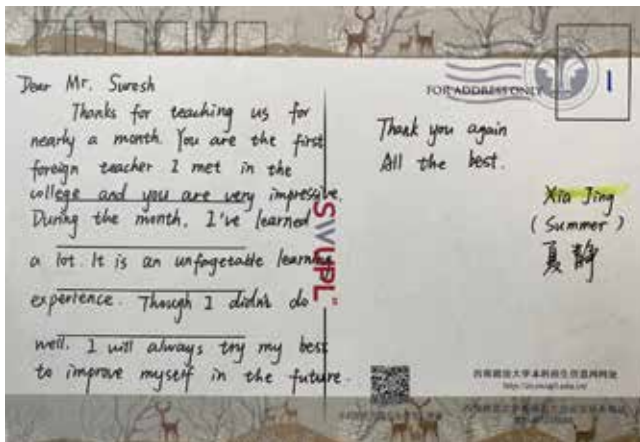 Dear Mr. Suresh
Thanks for teaching us for
nearly a month. You are the first
foreign teacher I met in the
college and you are very impressive.
During the month, I've learned
a lot. It is an unfogetable learning
experience. Though I didn't do
well. I will always try my best
to improve myself in the future.
SWUPL
FOR ADDRESS ONLY
1
Thank you again
All the best.
Xia Jing
(Summer)
夏静
西南政法大学本科招生信息网网址